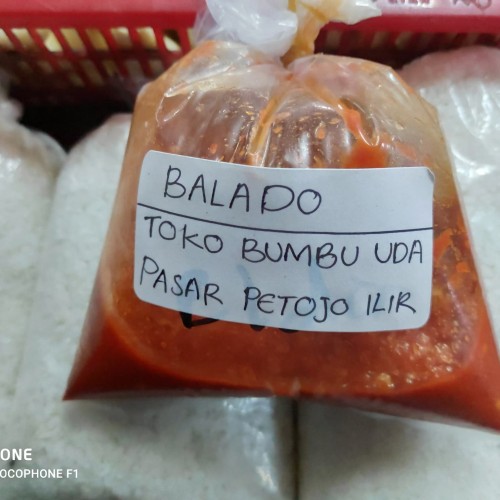 BALADO
TOKO BUMBU UDA
PASAR PETOJO ILIR
ONE
OCOPHONE F1